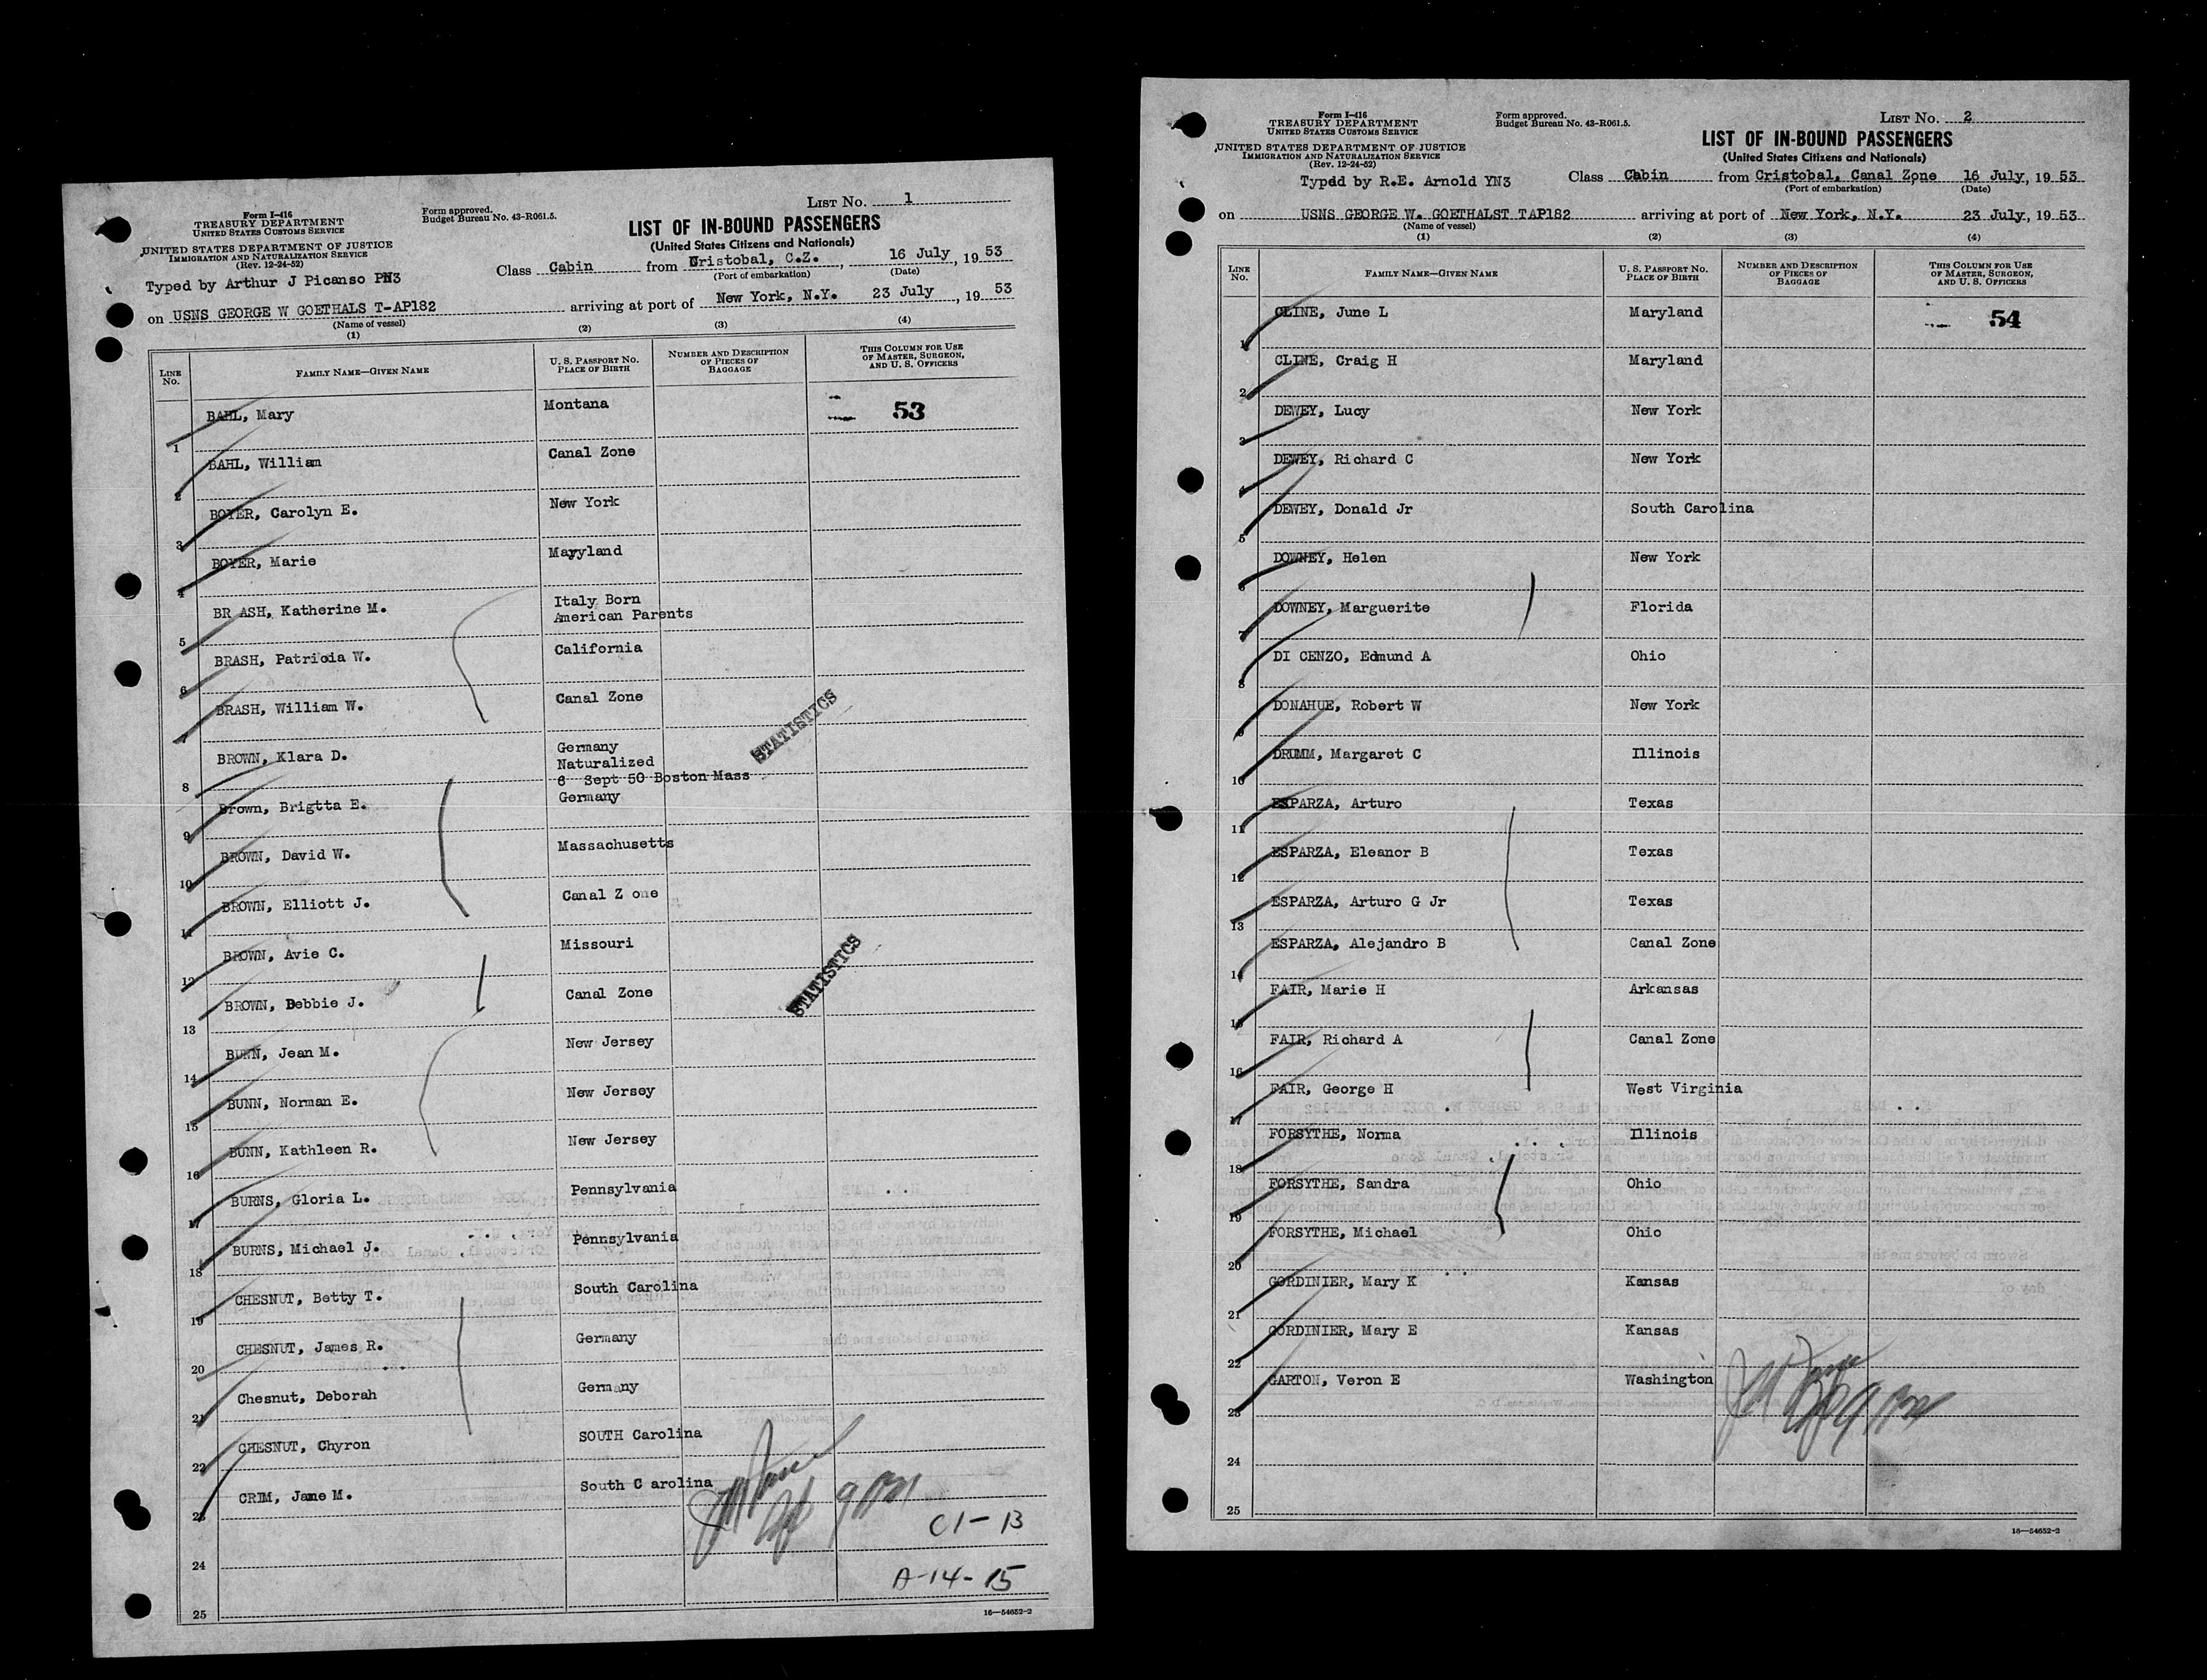 Form I-416
TREASURY DEPARTMENT
UNITED STATES CUSTOMS SERVICE
UNITED STATES DEPARTMENT OF JUSTICE
IMMIGRATION AND NATURALIZATION SERVICE
(Rev. 12-24-52)
Form approved.
Budget Bureau No. 43-R061.5.
LIST No. 1
LIST OF IN-BOUND PASSENGERS
(United States Citizens and Nationals)
Typed by Arthur J Picanso PN3
Class Cabin from Cristobal, C.Z., 16 July, 19 53
(Port of embarkation) (Date)
on USNS GEORGE W GOETHALS T-AP182 arriving at port of New York, N.Y. 23 July, 19 53
(Name of vessel)
(1) (2) (3) (4)
LINE No. FAMILY NAME—GIVEN NAME U. S. PASSPORT No. PLACE OF BIRTH NUMBER AND DESCRIPTION OF PIECES OF BAGGAGE THIS COLUMN FOR USE OF MASTER, SURGEON, AND U. S. OFFICERS
1 BAHL, Mary Montana 53
2 BAHL, William Canal Zone
3 BOYER, Carolyn E. New York
4 BOYER, Marie Mayyland
5 BR ASH, Katherine M. Italy Born
American Parents
6 BRASH, Patricia W. California
7 BRASH, William W. Canal Zone
STATISTICS
8 BROWN, Klara D. Germany
Naturalized
6 Sept 50 Boston Mass
9 Brown, Brigtta E. Germany
10 BROWN, David W. Massachusetts
11 BROWN, Elliott J. Canal Z one
12 BROWN, Avie C. Missouri
STATISTICS
13 BROWN, Debbie J. Canal Zone
14 BUNN, Jean M. New Jersey
15 BUNN, Norman E. New Jersey
16 BUNN, Kathleen R. New Jersey
17 BURNS, Gloria L. Pennsylvania
18 BURNS, Michael J. Pennsylvania
19 CHESNUT, Betty T. South Carolina
20 CHESNUT, James R. Germany
21 Chesnut, Deborah Germany
22 CHESNUT, Chyron SOUTH Carolina
23 CRIM, Jane M. South C arolina
C1-13
24
A-14-15
25
16—54652-2
Form I-416
TREASURY DEPARTMENT
UNITED STATES CUSTOMS SERVICE
UNITED STATES DEPARTMENT OF JUSTICE
IMMIGRATION AND NATURALIZATION SERVICE
(Rev. 12-24-52)
Form approved.
Budget Bureau No. 43-R061.5.
LIST No. 2
LIST OF IN-BOUND PASSENGERS
(United States Citizens and Nationals)
Typed by R.E. Arnold YN3
Class Cabin from Cristobal, Canal Zone 16 July, 19 53
(Port of embarkation) (Date)
on USNS GEORGE W. GOETHALST TAP182 arriving at port of New York, N.Y. 23 July, 19 53
(Name of vessel)
(1) (2) (3) (4)
LINE No. FAMILY NAME—GIVEN NAME U. S. PASSPORT No. PLACE OF BIRTH NUMBER AND DESCRIPTION OF PIECES OF BAGGAGE THIS COLUMN FOR USE OF MASTER, SURGEON, AND U. S. OFFICERS
1 CLINE, June L Maryland 54
2 CLINE, Craig H Maryland
3 DEWEY, Lucy New York
4 DEWEY, Richard C New York
5 DEWEY, Donald Jr South Carolina
6 DOWNEY, Helen New York
7 DOWNEY, Marguerite Florida
8 DI CENZO, Edmund A Ohio
9 DONAHUE, Robert W New York
10 DRUMM, Margaret C Illinois
11 ESPARZA, Arturo Texas
12 ESPARZA, Eleanor B Texas
13 ESPARZA, Arturo G Jr Texas
14 ESPARZA, Alejandro B Canal Zone
15 FAIR, Marie H Arkansas
16 FAIR, Richard A Canal Zone
17 FAIR, George H West Virginia
18 FORSYTHE, Norma Illinois
19 FORSYTHE, Sandra Ohio
20 FORSYTHE, Michael Ohio
21 GORDINIER, Mary K Kansas
22 GORDINIER, Mary E Kansas
23 GARTON, Veron E Washington
24
25
16—54652-2